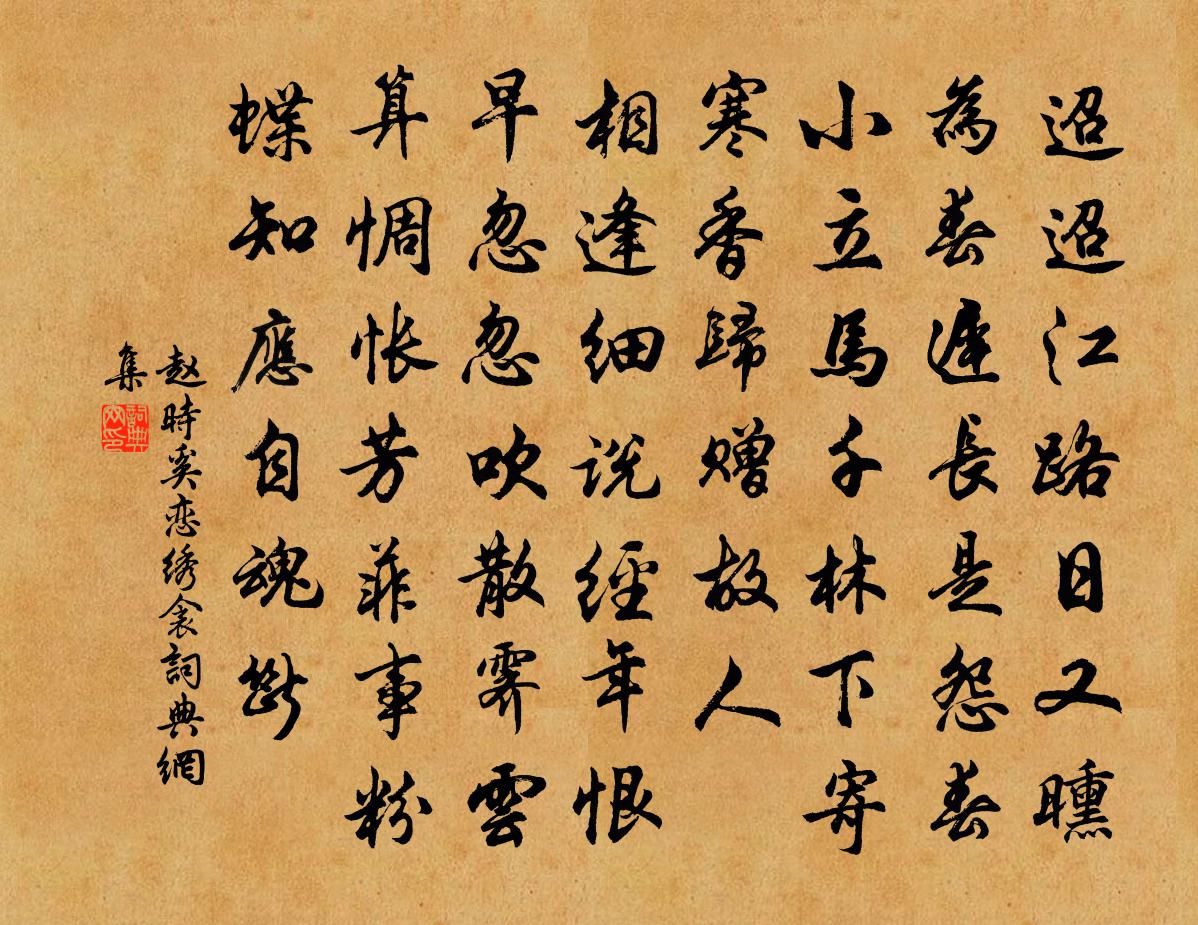 迢迢江路日又曛
為春遲長是怨春
小立馬千林下寄
寒香歸贈故人
相逢細説經年恨
早忽忽吹散霽雲
算惆怅芳菲事粉
蝶知應自魂斷
赵時奚恋绣衾詞典網
集
詞典網印